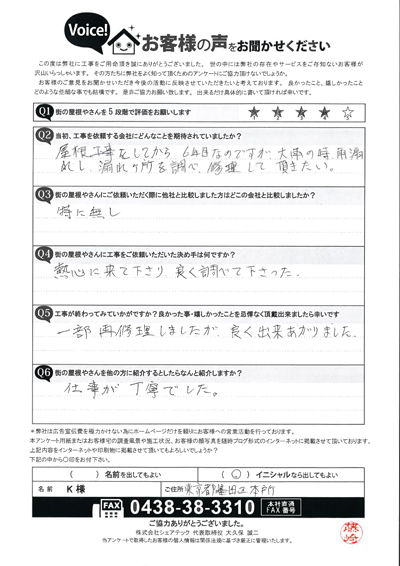 Voice!
お客様の声をお聞かせください
この度は弊社に工事をご用命頂き誠にありがとうございました。世の中には弊社の存在やサービスをご存知ないお客様が
沢山いらっしゃいます。その方たちに弊社をよく知って頂くためのアンケートにご協力頂けないでしょうか。
お客様のご意見をお聞かせいただき今後の活動に反映させていただきたいと考えております。良かったこと、嬉しかったこと
どのような些細な事でも結構です。是非ご協力お願い致します。出来るだけ具体的に書いて頂ければ幸いです。
Q1 街の屋根やさんを5段階で評価をお願いします
Q2 当初、工事を依頼する会社にどんなことを期待されていましたか?
屋根工事をしてから6年目なのですが、大雨の時、雨漏
れし、漏れの所を調べ、修理して頂きたい。
Q3 街の屋根やさんにご依頼いただく際に他社と比較しました方はどこの会社と比較しましたか?
特に無し
Q4 街の屋根やさんに工事をご依頼いただいた決め手は何ですか?
熱心に来て下さり、良く調べて下さった.
Q5 工事が終わってみていかがですか?良かった事・嬉しかったことを忌憚なく頂戴出来ましたら幸いです
一部再修理しましたが、良く出来あがりました.
Q6 街の屋根やさんを他の方に紹介するとしたらなんと紹介しますか?
仕事が丁寧でした。
*弊社は広告宣伝費を極力かけない為にホームページだけを頼りにお客様への営業活動を行っております。
本アンケート用紙またはお客様宅の調査風景や施工状況、お客様の顔写真を随時ブログ形式のインターネットに掲載させて頂いております。
上記内容をインターネットや印刷物に掲載させて頂いてもよろしいでしょうか?
下記の中から○印をお付下さい。
( )名前を出してもよい (○)イニシャルなら出してもよい
名前 K様 ご住所 東京都墨田区本所
FAX 0438-38-3310 本社直通FAX番号
ご協力ありがとうございました。
株式会社シェアテック 代表取締役 大久保 誠二
当アンケートで取得したお客様の個人情報は関係法規に基づき厳正に管理いたします。